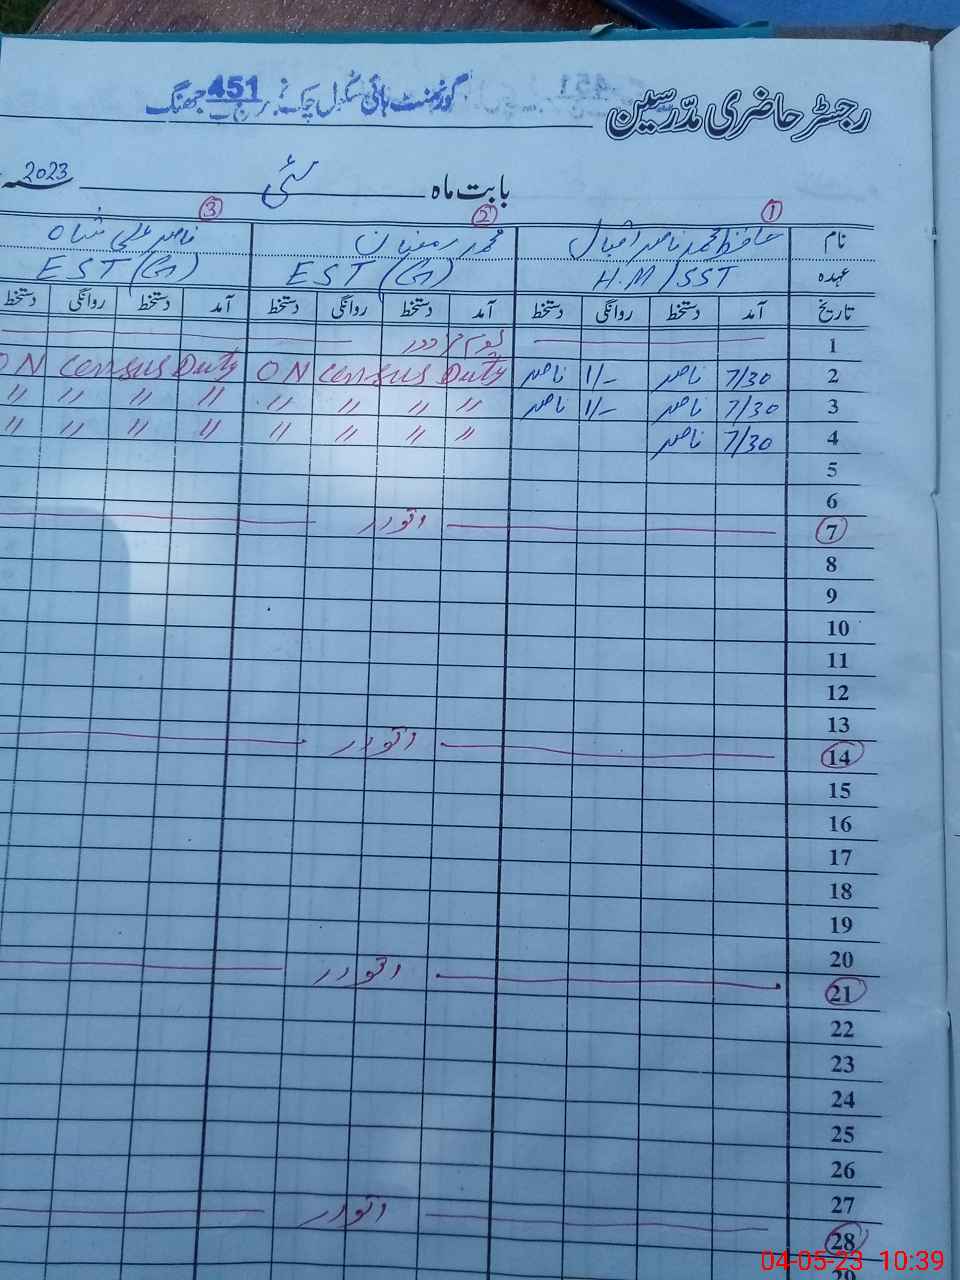 گورنمنٹ ہائی سکول چک نمبر 451 ج ب جھنگ
رجسٹر حاضری مدرسین
بابت ماہ مئی سنہ 2023
1 2 3
نام حافظ محمد ناصر اقبال محمد رمضان ناصر علی شاہ
عہدہ H.M/SST EST (G) EST (G)
تاریخ آمد دستخط روانگی دستخط آمد دستخط روانگی دستخط آمد دستخط روانگی دستخط
1 یوم مزدور
2 7/30 ناصر 1/- ناصر ON Census Duty ON Census Duty
3 7/30 ناصر 1/- ناصر " " " " " " " "
4 7/30 ناصر " " " " " " " "
5
6
7 اتوار
8
9
10
11
12
13
14 اتوار
15
16
17
18
19
20
21 اتوار
22
23
24
25
26
27
28 اتوار
29
04-05-23 10:39